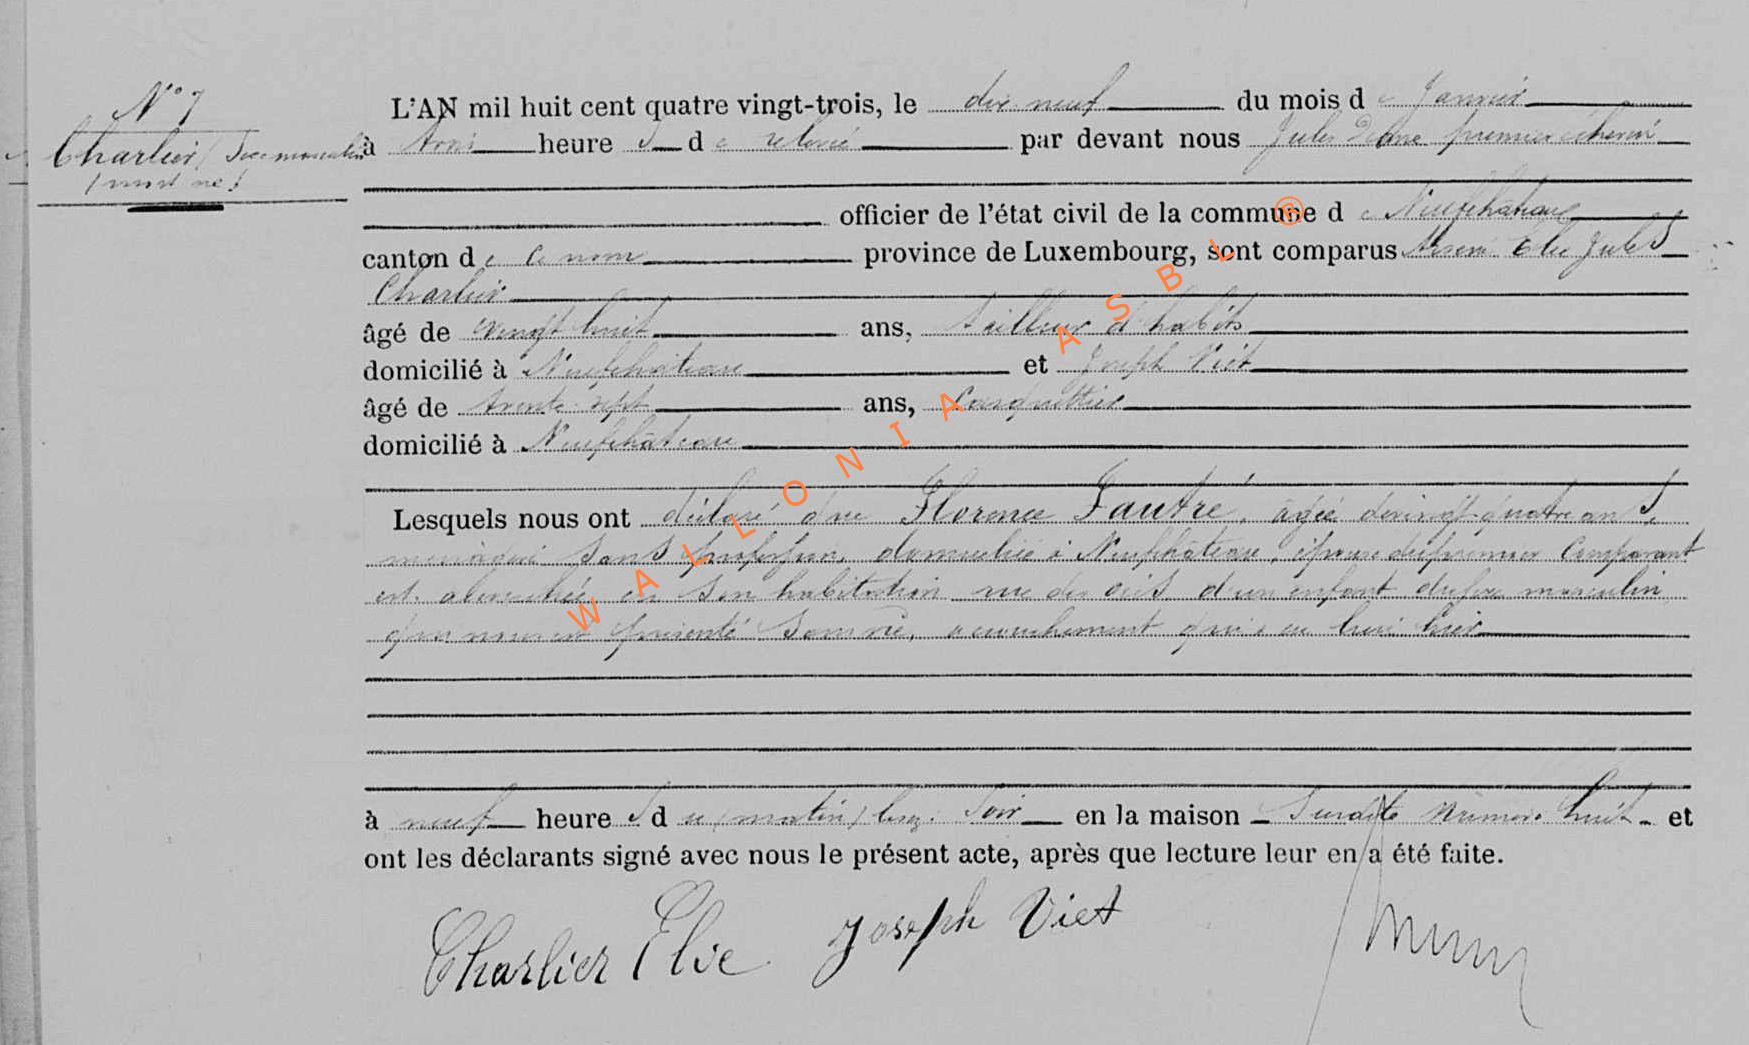 N° 7
Charlier / Sexe masculin
/ mort né /
L'AN mil huit cent quatre vingt-trois, le dix neuf du mois de Janvier
à trois heures de relevé par devant nous Jules premier échevin
officier de l'état civil de la commune de Neufchâteau
canton de ce nom province de Luxembourg, sont comparus Elie Jules
Charlier
âgé de vingt huit ans, tailleur d'habits
domicilié à Neufchâteau et Joseph Viet
âgé de trente sept ans, Casquettier
domicilié à Neufchâteau
Lesquels nous ont déclaré que Florence Fautré, âgée de vingt quatre ans,
sans profession, domiciliée à Neufchâteau, épouse du premier Comparant
est accouchée en son habitation rue des d'un enfant du sexe masculin
présenté sans vie, accouchement qui a eu lieu hier
à neuf heures du (matin) soir en la maison Susdite numéro huit et
ont les déclarants signé avec nous le présent acte, après que lecture leur en a été faite.
Charlier Elie Joseph Viet
WALLONIA ASBL ®